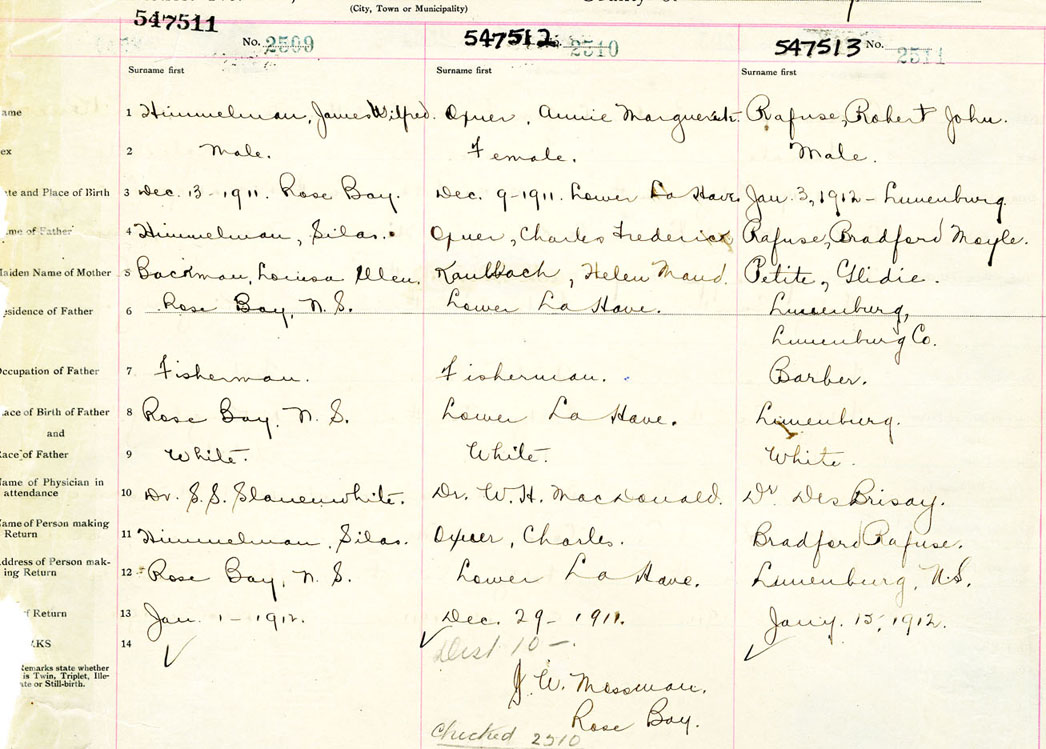 (City, Town or Municipality)
547511 547512 547513
No. 2509 2510 No. 2511
Surname first Surname first Surname first
ame 1 Himmelman, James Wilfred. Oxner, Annie Marguerite. Rafuse, Robert John.
ex 2 Male. Female. Male.
te and Place of Birth 3 Dec. 13-1911. Rose Bay. Dec. 9-1911. Lower La Have. Jan. 3, 1912 - Lunenburg.
me of Father 4 Himmelman, Silas. Oxner, Charles Frederick Rafuse, Bradford Moyle.
aiden Name of Mother 5 Backman, Louisa Ellen. Kaulbach, Helen Maud. Petite, Glidie.
esidence of Father 6 Rose Bay, N. S. Lower La Have. Lunenburg,
Lunenburg Co.
ccupation of Father 7 Fisherman. Fisherman. Barber.
ace of Birth of Father 8 Rose Bay, N. S. Lower La Have. Lunenburg.
and
Race of Father 9 White. White. White.
Name of Physician in
attendance 10 Dr. S.S. Slauenwhite. Dr. W. H. MacDonald. Dr DesBrisay.
ame of Person making
Return 11 Himmelman, Silas. Oxner, Charles. Bradford Rafuse.
ddress of Person mak-
ing Return 12 Rose Bay, N. S. Lower La Have. Lunenburg, N.S.
of Return 13 Jan. 1-1912. Dec. 29-1911. Jany. 15, 1912.
KS 14 Dist 10-.
Remarks state whether
is Twin, Triplet, Ille-
te or Still-birth.
J. W. Mossman.
Rose Bay.
Checked 2510